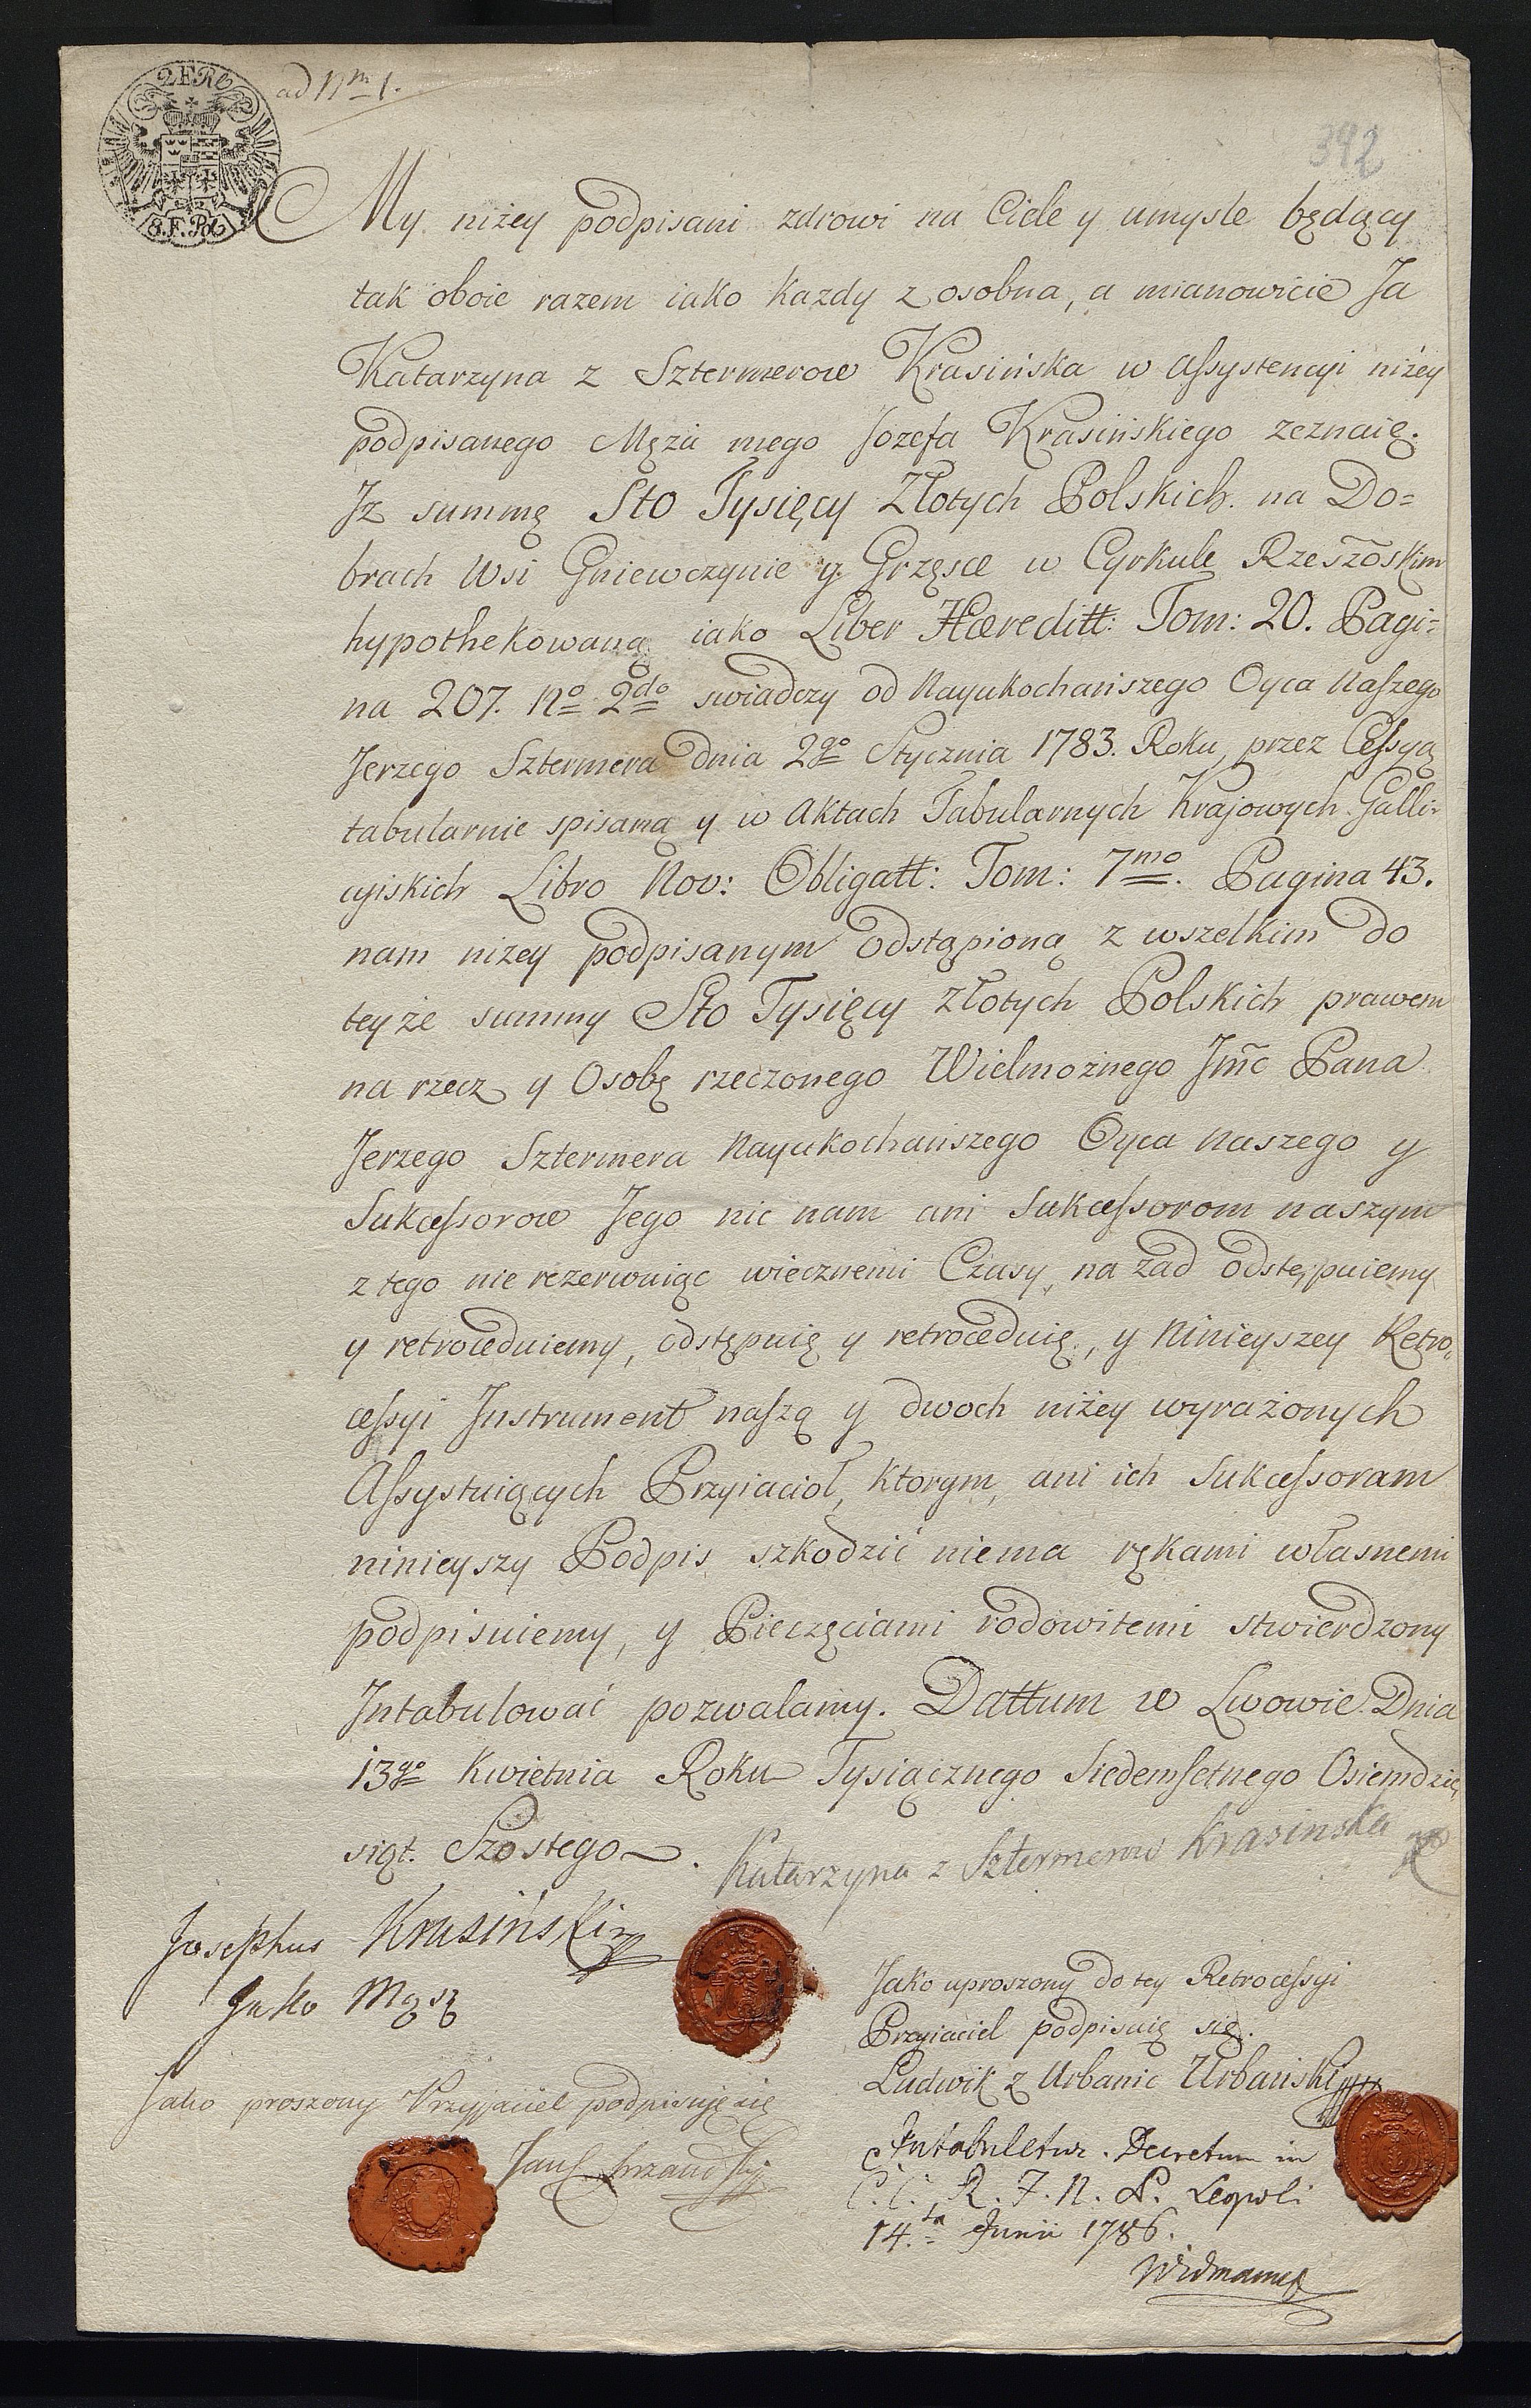 2 F. Rh
ad Nm 1.
392
8. F. Pol
My niżey podpisani zdrowi na Ciele y umysle będący
tak oboie razem iako Kazdy z osobna, a mianowicie Ja
Katarzyna z Szternerow Krasińska w Assystencyi niżey
podpisanego Męża mego Jozefa Krasińskiego zeznaię.
Iz summę Sto Tysięcy Złotych Polskich na Do=
brach Wsi Gniewczynie y Grzęsce w Cyrkule Rzeszoskim
hypothekowaną iako Liber Hæreditt: Tom: 20. Pagi=
na 207. No 2do swiadczy od Nayukochańszego Oyca Naszego
Jerzego Szternera Dnia 2go Stycznia 1783. Roku, przez Cessyą
tabularnie spisaną y w Aktach Tabularnych Krajowych Galli=
cyiskich Libro Nov: Obligatt: Tom: 7mo. Pagina 43.
nam niżey podpisanym odstąpioną z wszelkim do
teyże summy Sto Tysięcy Złotych Polskich prawem
na rzecz y Osobę rzeczonego Wielmożnego Jmć Pana
Jerzego Szternera Nayukochańszego Oyca Naszego y
Sukcessorow Jego nic nam ani Sukcessorom naszym
z tego nie rezerwuiąc wiecznemi Czasy, na zad odstępuiemy
y retroceduiemy, odstępuię y retroceduię, y Ninieyszey Retro=
cessyi Instrument naszą y dwoch niżey wyrażonych
Assystuiących Przyiacioł, Ktorym, ani ich Sukcessoram
ninieyszy Podpis szkodzić niema rękami własnemi
podpisuiemy, y Pieczęciami rodowitemi stwierdzony
Intabulować pozwalamy. Dattum w Lwowie Dnia
13go Kwietnia Roku Tysiącznego Siedemsetnego Osiemdzie,
siąt. Szostego.
Katarzyna z Szternerow Krasinska
Josephus Krasiński
Jako Mąsz
Jako uproszony do tey Retrocessyi
Przyiaciel podpisuię się.
Ludwik z Urbanic Urbański
Jako proszony Przyjaciel podpisuję się
Jan
Intabuletur. Decretum in
C. C. R. J. N. L. Leopoli
14.ta Junii 1786.
Widmann